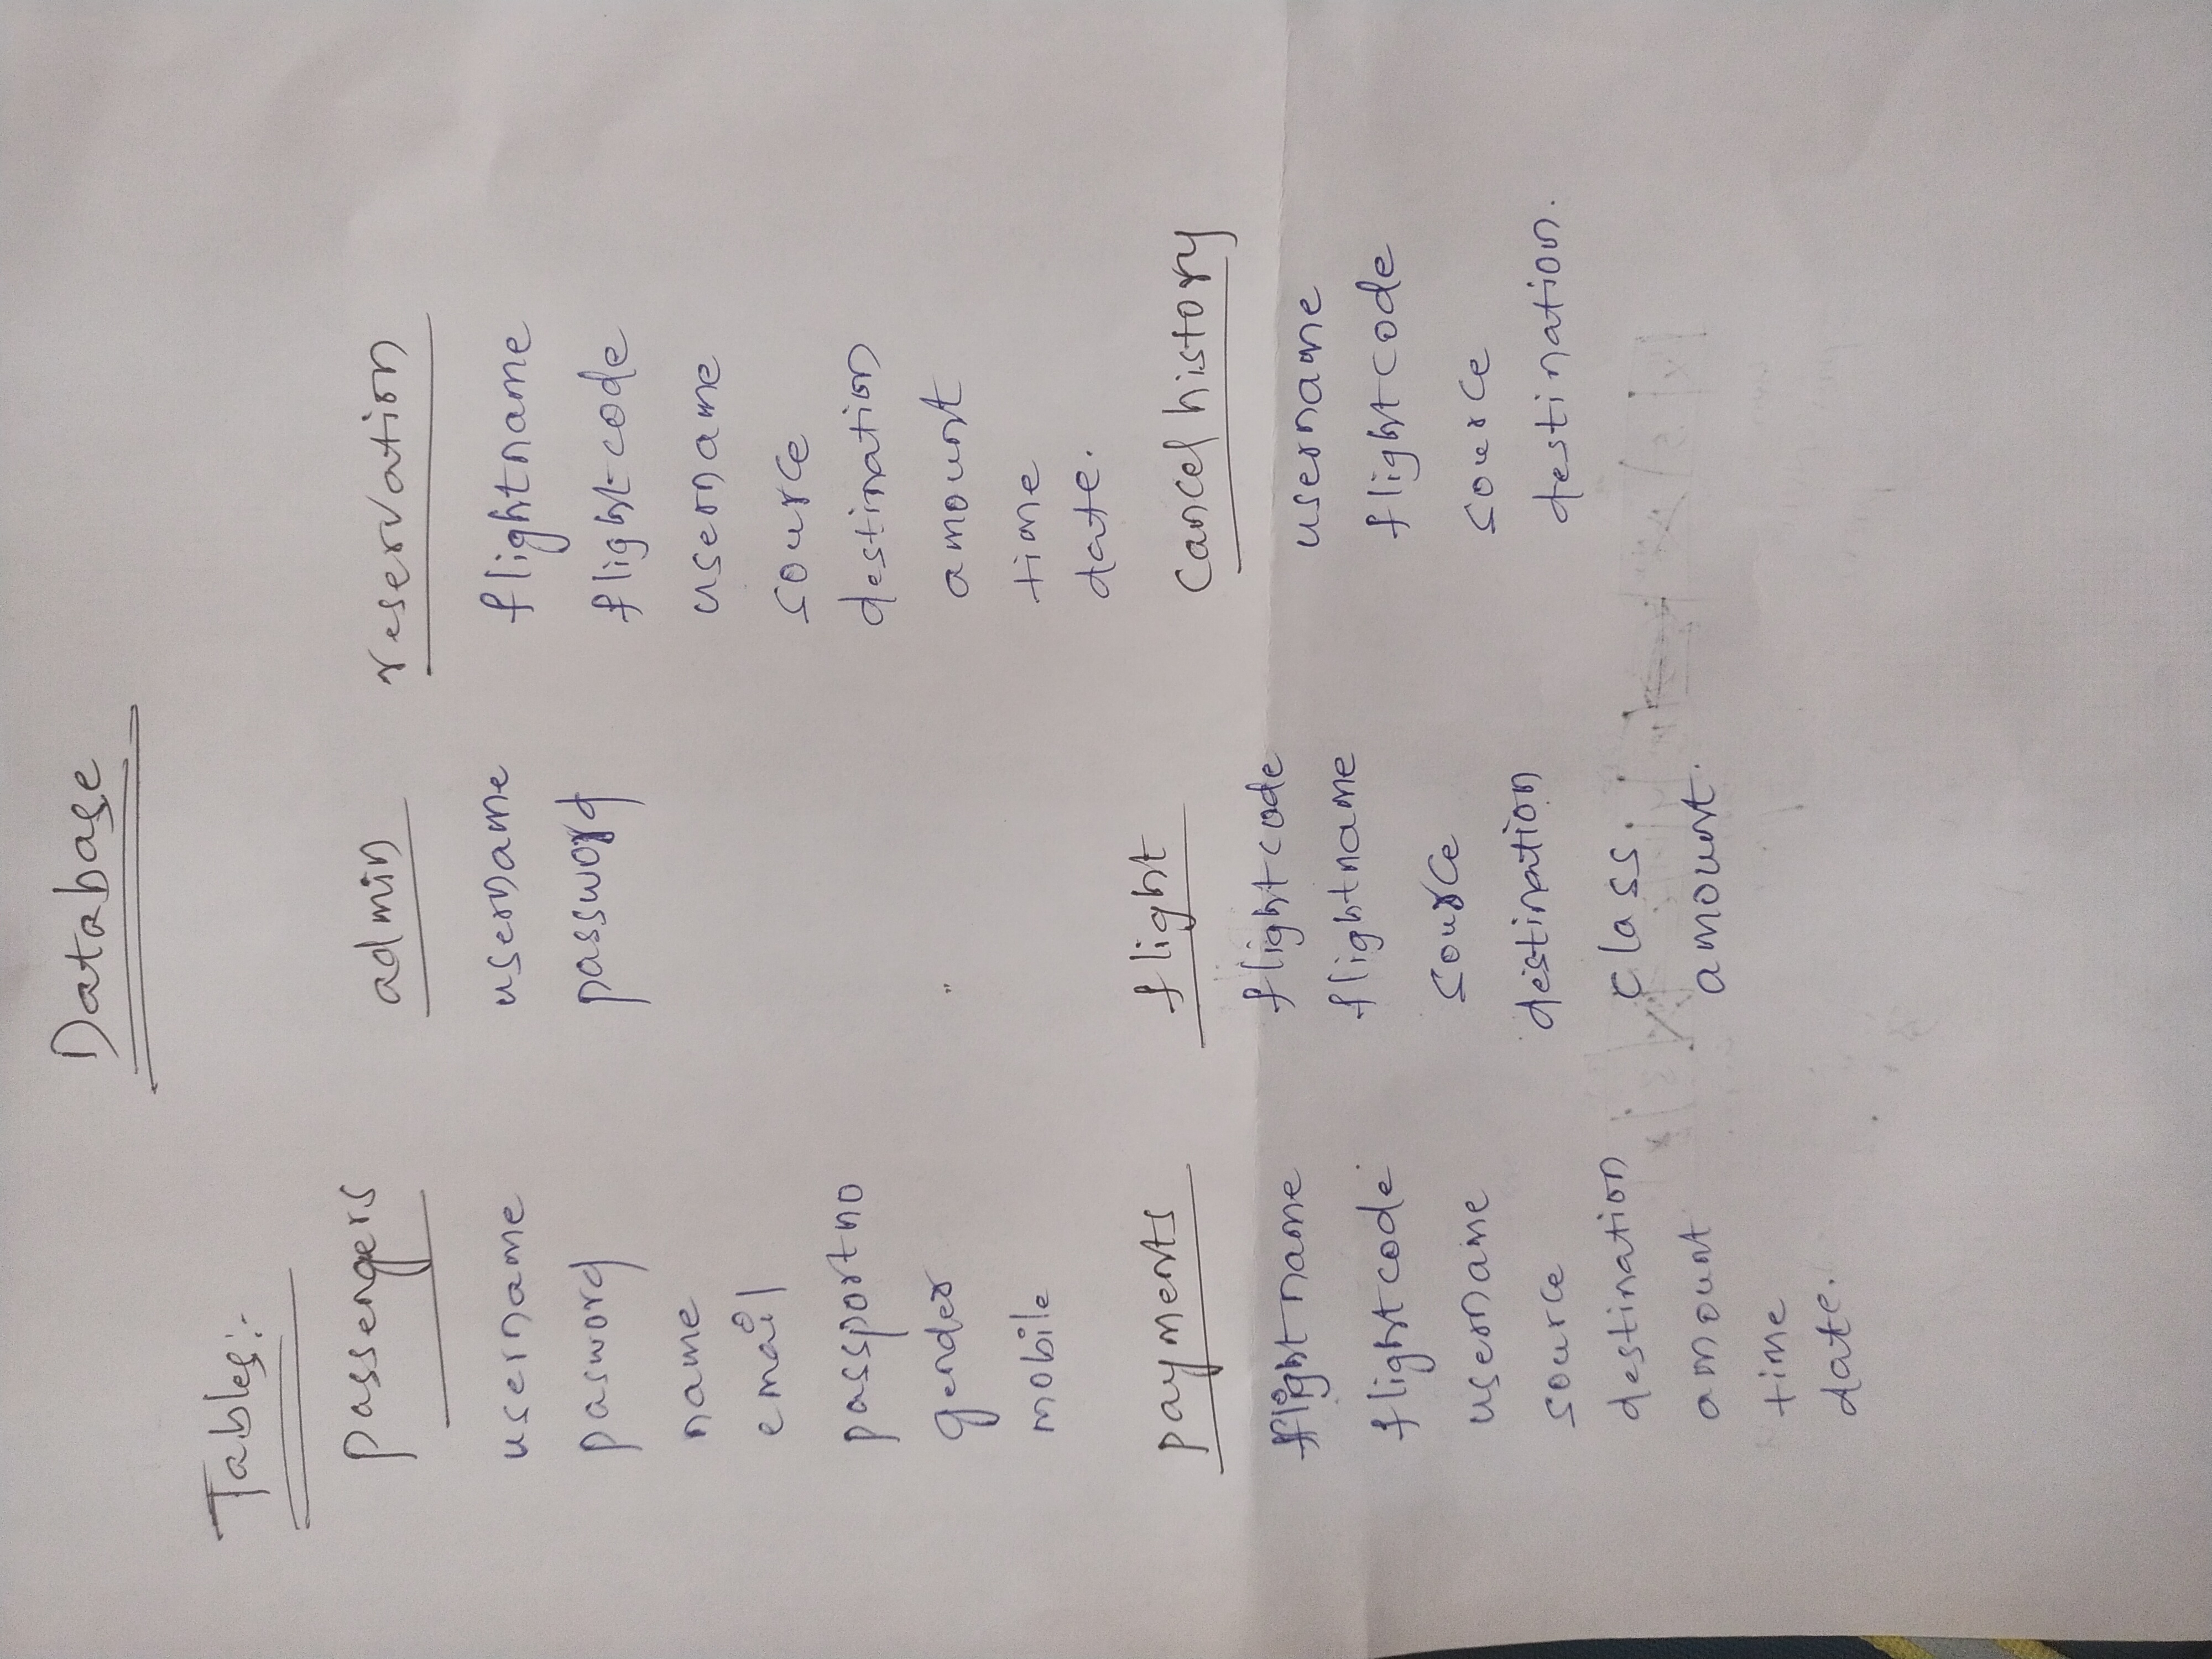 Database
Tables:-
passengers
username
pasword
name
email
passportno
gender
mobile
admin
username
password
reservation
flightname
flightcode
username
source
destination
amount
time
date.
payments
flightname
flightcode
username
source
destination
amount
time
date.
flight
flightcode
flightname
source
destination
class.
amount.
Cancel history
username
flightcode
source
destination.